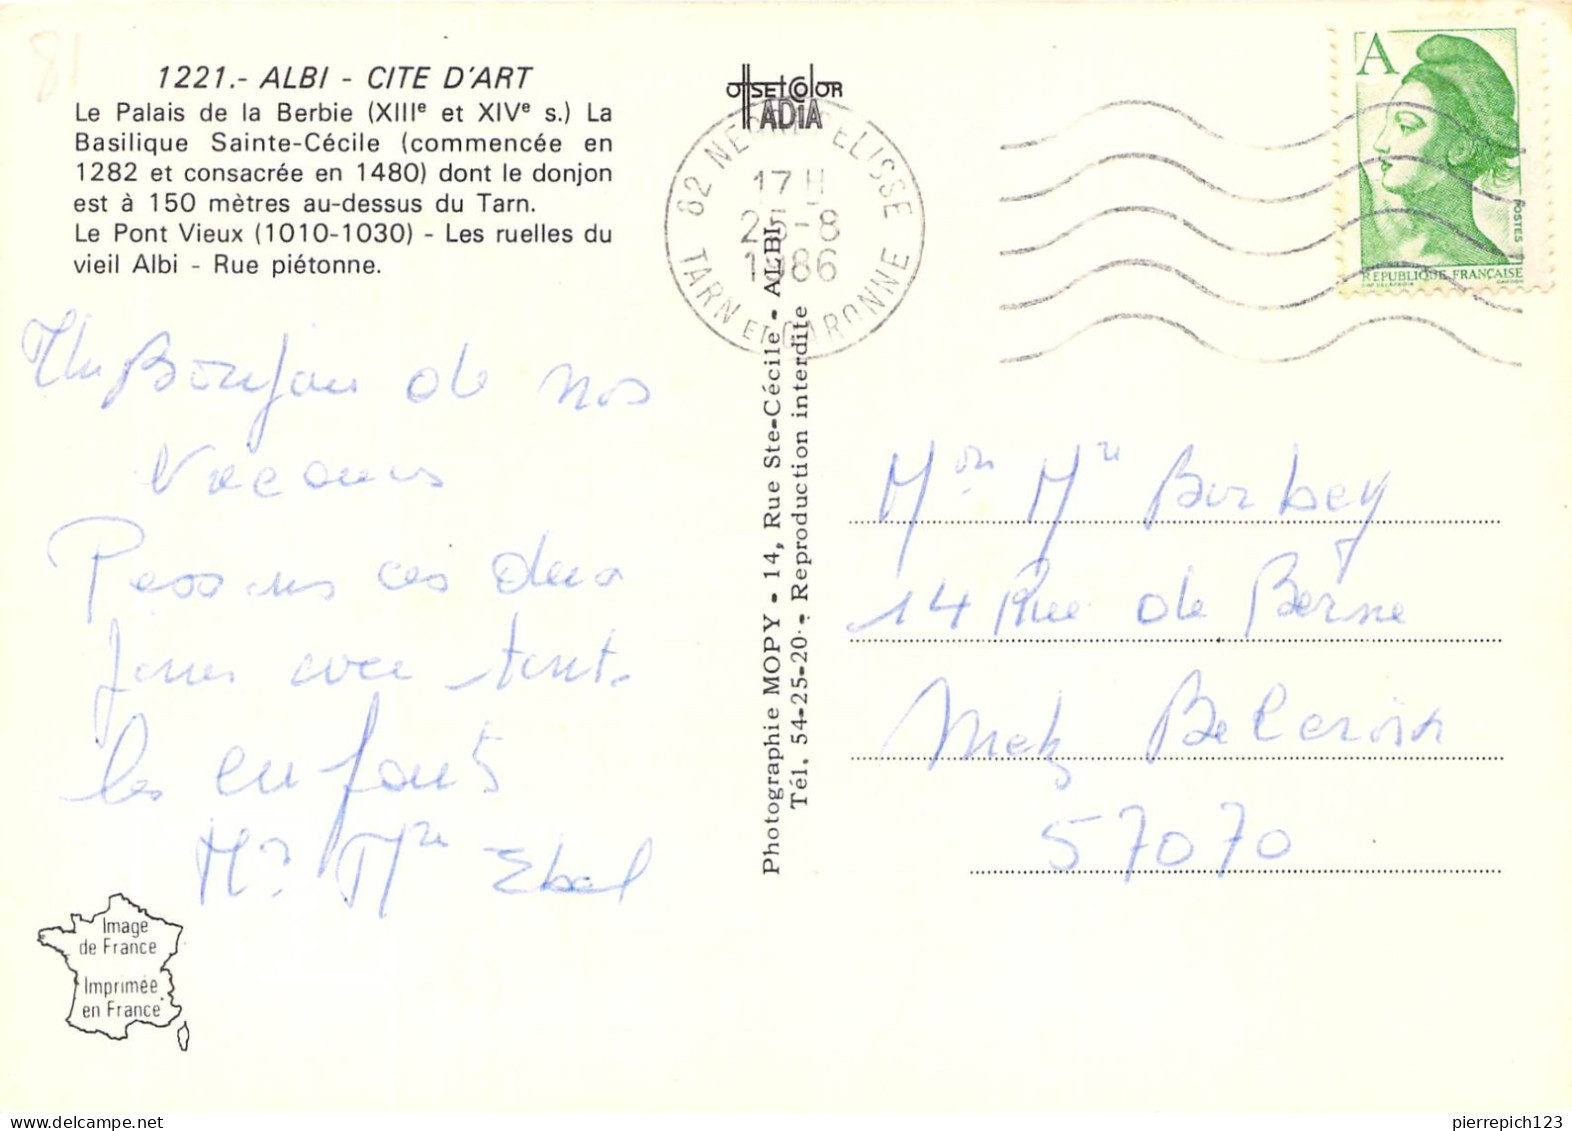 81
1221.- ALBI - CITE D'ART
Le Palais de la Berbie (XIIIe et XIVe s.) La
Basilique Sainte-Cécile (commencée en
1282 et consacrée en 1480) dont le donjon
est à 150 mètres au-dessus du Tarn.
Le Pont Vieux (1010-1030) - Les ruelles du
vieil Albi - Rue piétonne.
Un Bonjour de nos
Vacances
Passons ces deux
jours avec tout
les enfants
Mr Mme Ebel
Image
de France
Imprimée
en France
OffsetColor
ADIA
82 NEGREPELISSE
17 H
25-8
1986
TARN ET GARONNE
Photographie MOPY - 14, Rue Ste-Cécile - ALBI
Tél. 54-25-20 - Reproduction interdite
A
POSTES
REPUBLIQUE FRANÇAISE
Mon Mme Burbey
14 Rue de Berne
Metz Belcroix
57070
pierrepich123